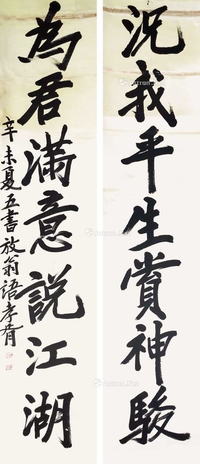 況我平生賞神駿
為君滿意說江湖
辛未夏五書放翁語孝胥